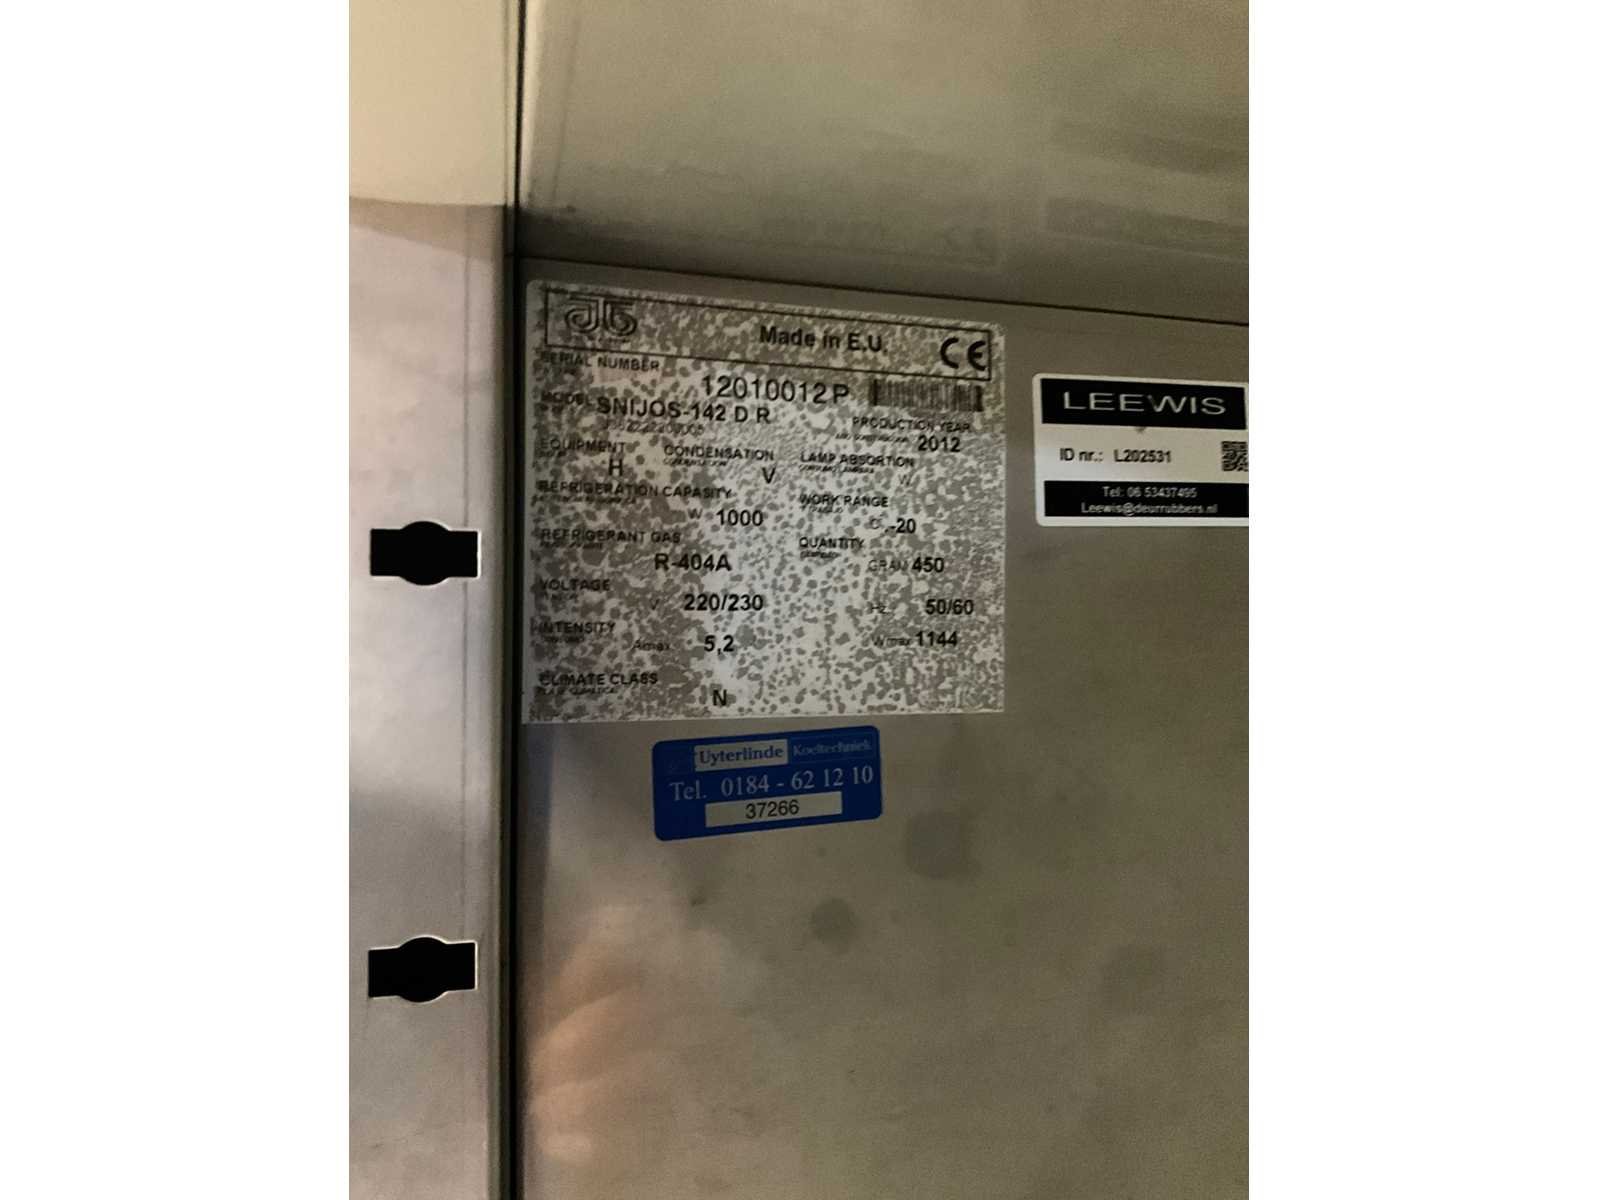 Made in E.U. CE
SERIAL NUMBER
12010012P
MODEL SNIJOS-142 D R
PRODUCTION YEAR
2012
EQUIPMENT
H
CONDENSATION
V
LAMP ABSORTION
W
REFRIGERATION CAPASITY
W 1000
WORK RANGE
-20
REFRIGERANT GAS
R-404A
QUANTITY
GRAM 450
VOLTAGE
V 220/230
Hz 50/60
INTENSITY
Amax 5,2
Wmax 1144
CLIMATE CLASS
N
LEEWIS
ID nr.: L202531
Tel: 06 53437495
Leewis@deurrubbers.nl
Uyterlinde Koeltechniek
Tel. 0184 - 62 12 10
37266